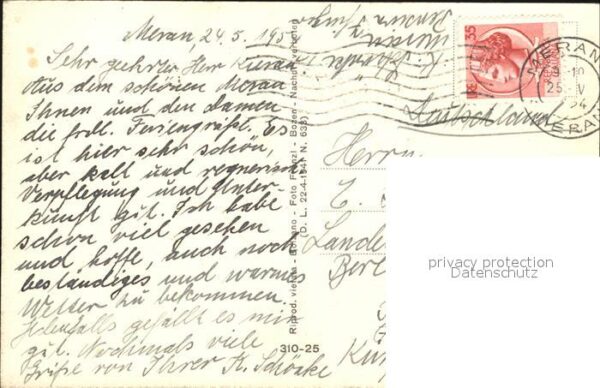 Meran, 24.5.195
Sehr geehrter Herr
Aus dem schönen Meran
Ihnen und den Damen
die frdl. Feriengrüße. Es
ist hier sehr schön,
aber kalt und regnerisch
Verpflegung und Unter-
kunft gut. Ich habe
schon viel gesehen
und hoffe, auch noch
beständiges und warmes
Wetter zu bekommen.
Jedenfalls gefällt es mir
gut. Nochmals viele
Grüße von Ihrer K. Schönke
Riprod. vietata - Bolzano - Foto Fränzl - Bozen - Nachdr. verboten
(D. L. 22-4-1941 N. 633)
310-25
35
MERANO
9-10
25 V
54
MERANO
Deutschland
Herrn
E.
Lande
Berl
privacy protection
Datenschutz